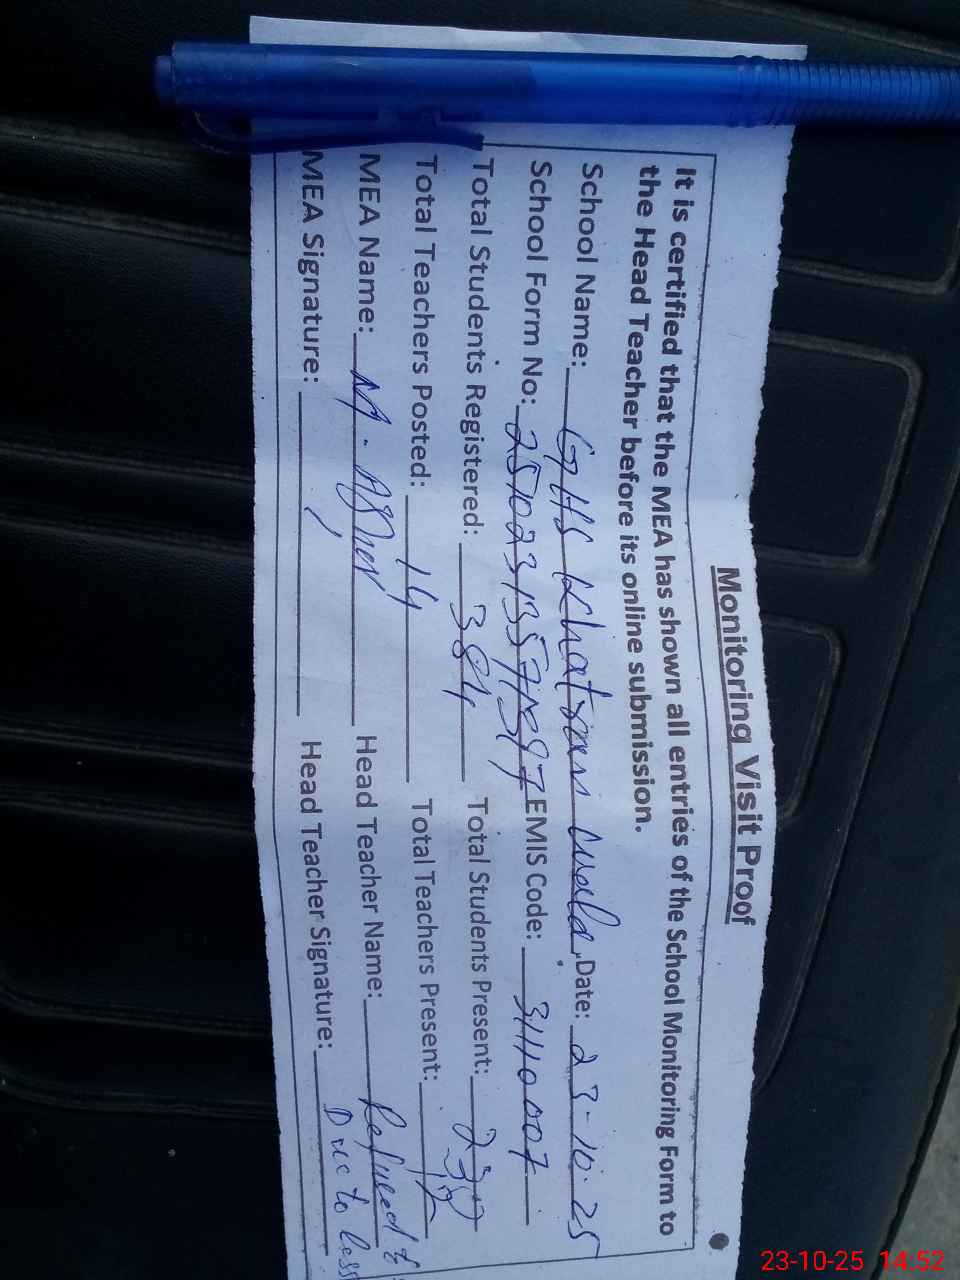 Monitoring Visit Proof
It is certified that the MEA has shown all entries of the School Monitoring Form to
the Head Teacher before its online submission.
School Name: GHS Khatwan Date: 23-10-25
School Form No: EMIS Code: 31110007
Total Students Registered: 384 Total Students Present:
Total Teachers Posted: 14 Total Teachers Present: 12
MEA Name: M. Head Teacher Name: Refused
MEA Signature: Head Teacher Signature: Due to less
23-10-25 14:52